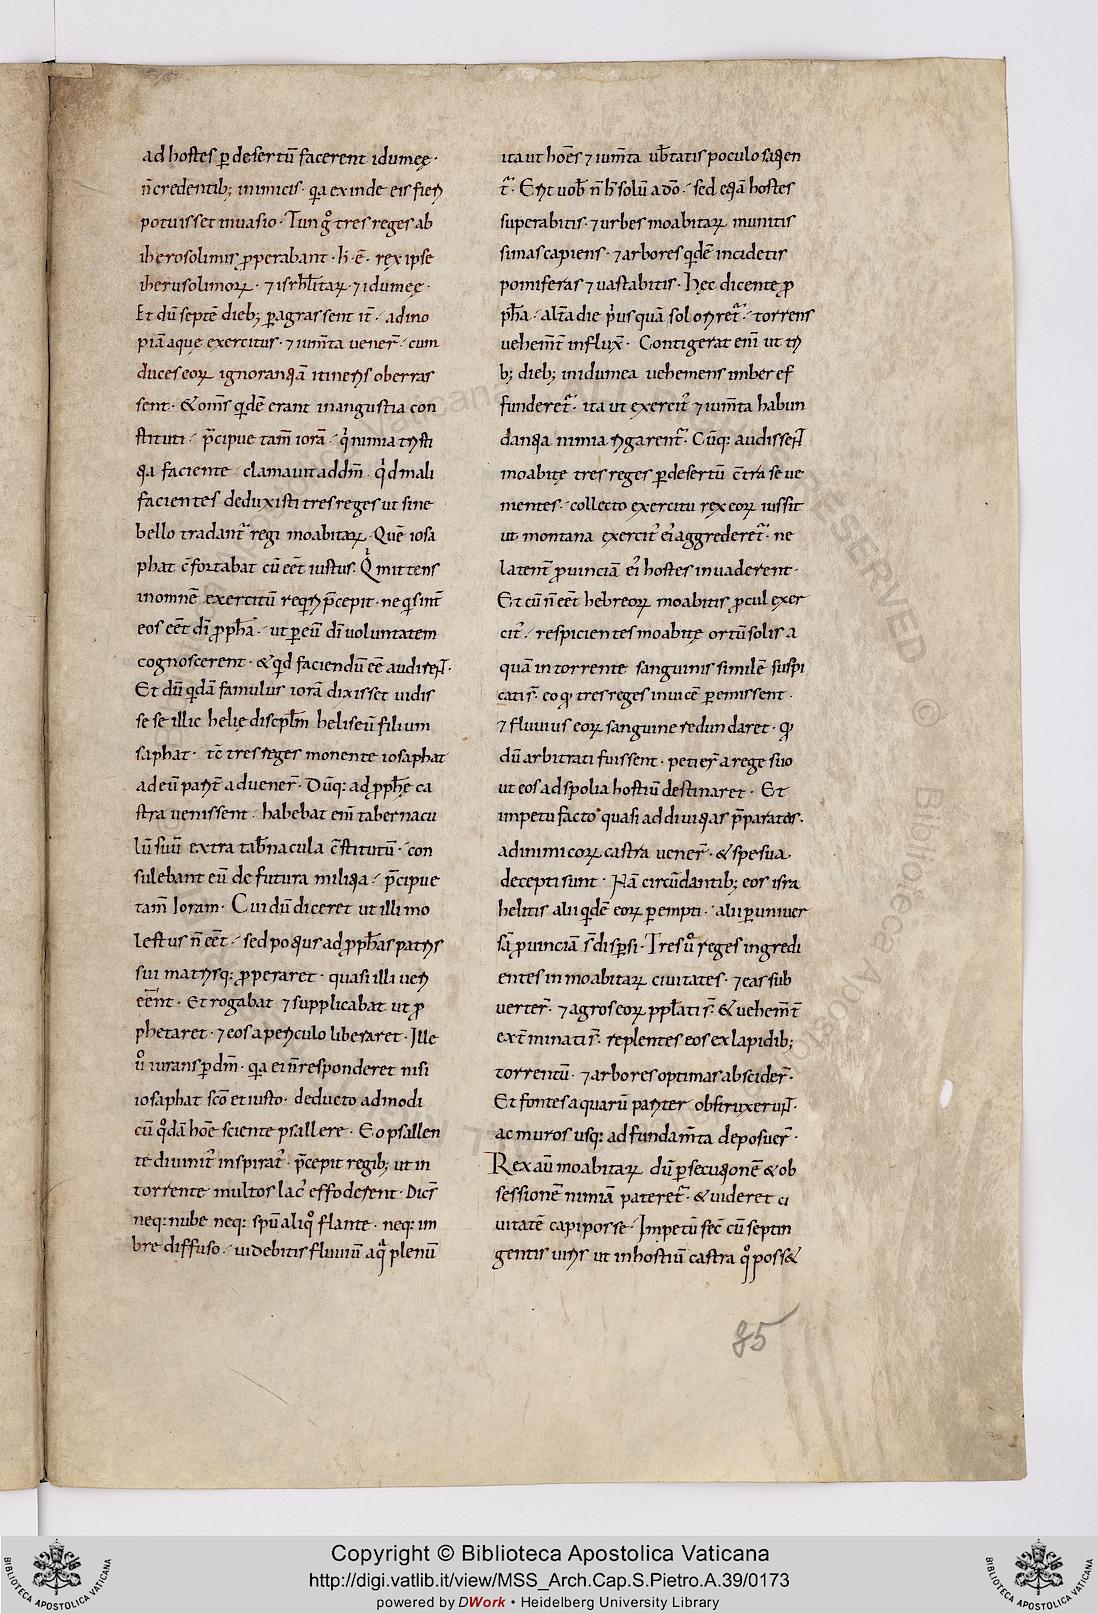 ad hostes ꝑ desertū facerent idumeę ·
n̄ credentib; inimicis · qa exinde eis fieri
potuisset inuasio · Tunc gͦ tres reges ab
iherosolimis ꝓperabant · h · ē · rex ipse
iherusolimoꝝ · ⁊ isrhl̄itaꝝ · ⁊ idumeę ·
Et dū septē dieb; ꝑagrassent it̄ · ad ino
piā aquę exercitus · ⁊ ium̄ta vener̄ · cum
duces eoꝝ ignorantiā itineris oberras
sent · & om̄s qdē erant in angustia con
stituti · p̄cipue tam̄ iorā · qi nimia tristi
tia faciente · clamauit ad dm̄ · qid mali
facientes deduxisti tres reges ut sine
bello tradant᷑ regi moabitaꝝ · Quē iosa
phat c̄fortabat cū eēt iustus · Qi mittens
in omnē exercitū reqiri p̄cepit · ne qsint̄
eos eēt dī ꝓph̄a · ut ꝑ eū dī voluntatem
cognoscerent · & qd faciendū eē audirent ·
Et dū qdā famulus iorā dixisset uidis
se se illic helię discpl̄m heliseū filium
saphat · tc̄ tres reges monente iosaphat
ad eū parit̄ advener̄ · Dūq: ad ꝓph̄ę ca
stra venissent · habebat enī tabernacu
lū suū extra tab̄nacula c̄stitutū · con
sulebant eū de futura militia · p̄cipue
tam̄ Ioram · Cui dū diceret ut illi mo
lestus n̄ eēt · sed potius ad ꝓph̄as patris
sui matrisq: ꝓperaret · quasi illi veri
eēnt · Et rogabat ⁊ supplicabat ut ꝓ
phetaret · ⁊ eos a periculo liberaret · Ille
uͦ iurans ꝑ dm̄ · qa ei n̄ responderet nisi
iosaphat scō et iusto · deducto ad modi
cū qͦdā hoīe sciente psallere · Eo psallen
te diuinit᷑ inspirat᷑ · p̄cepit regib; ut in
torrente multos lac᷑ effoderent · Dic̄s
neq: nube neq: spū aliqͦ flante · neq: im
bre diffuso · uidebitis fluuiū aqa plenū
ita ut hoēs ⁊ ium̄ta ub̄tatis poculo satien
t᷑ · Erit uob̄ n̄ h̄ solū a dō · sed etiā hostes
superabitis · ⁊ urbes moabitaꝝ munitis
simas capiens · ⁊ arbores qdē incidetis
pomiferas ⁊ uastabitis · Hęc dicente ꝓ
ph̄a · alt̄a die p̄us quā sol oriret᷑ · torrens
vehem̄t influx̄ · Contigerat enī ut tri
b; dieb; in idumea vehemens imber ef
funderet᷑ · ita ut exercit᷑ ⁊ ium̄ta habun
dantia nimia rigarent᷑ · Cūq: audissent
moabitę tres reges ꝑ desertū c̄tra se ve
mentes · collecto exercitu rex eoꝝ iussit
ut montana exercit᷑ ei᷑ aggrederet᷑ · ne
latent᷑ ꝓuinciā ei᷑ hostes inuaderent ·
Et cū n̄ eēt hebreoꝝ moabitis ꝓcul exer
cit᷑ · respicientes moabitę ortū solis a
quā in torrente sanguinis similē suspi
cati s̄ · eo qͥ tres reges inuicē ꝑemissent ·
⁊ fluuius eoꝝ sanguine redundaret · qͥ
dū arbitrati fuissent · petier̄ a rege suo
ut eos ad spolia hostiū destinaret · Et
impetu facto quasi ad diuitias p̄paratas ·
ad inimicoꝝ castra vener̄ · & spe sua
decepti sunt · Nā circūdantib; eos isra
helitis alii qdē eoꝝ ꝑempti · alii ꝑ univer
sā ꝓuinciā s̄ disp̄si · Tres uͦ reges ingredi
entes in moabitaꝝ ciuitates · ⁊ eas sub
verter̄ · ⁊ agros eoꝝ ppl̄ati s̄ · & vehem̄t̄
ext̄minati s̄ · replentes eos ex lapidib;
torrentū · ⁊ arbores optimas abscider̄ ·
Et fontes aquarū pariter obstruxerunt ·
ac muros usq: ad fundam̄ta deposuer̄ ·
Rex aū moabitaꝝ dū ꝑsecutionē & ob
sessionē nimiā pateret᷑ · & uideret ci
uitatē capi posse · Impetū fec̄ cū septin
gentis uiris ut in hostiū castra qͦ poss&
85
Copyright © Biblioteca Apostolica Vaticana
http://digi.vatlib.it/view/MSS_Arch.Cap.S.Pietro.A.39/0173
powered by DWork • Heidelberg University Library